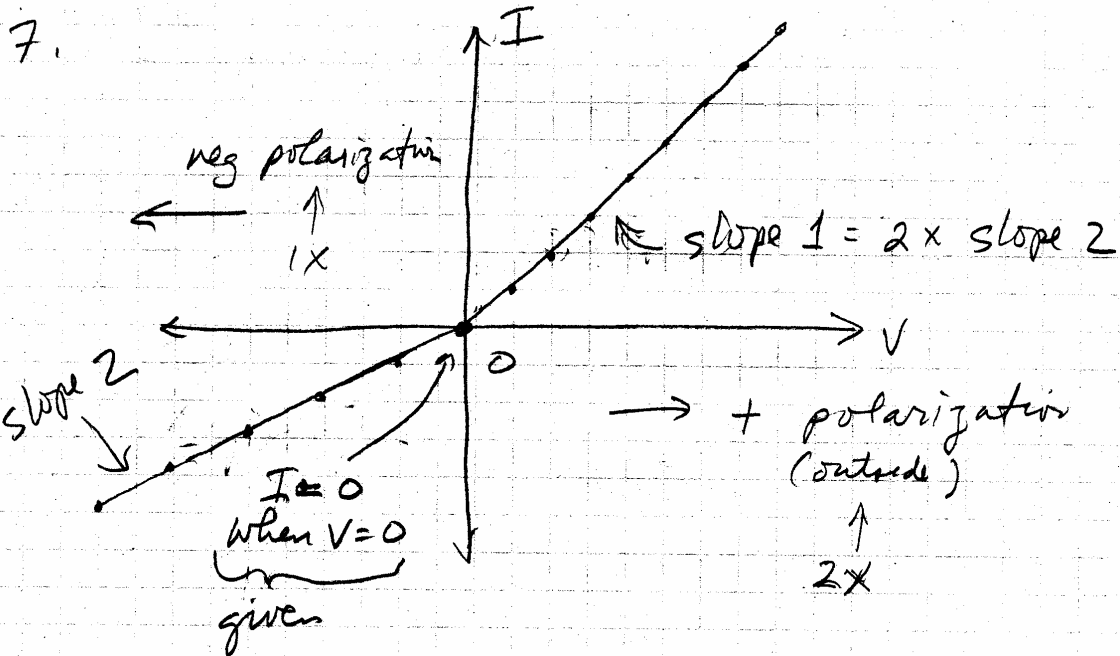 7.
I
neg polarization
↑
1x
slope 1 = 2 x slope 2
V
0
slope 2
→ + polarization
(outside)
↑
2x
I = 0
when V = 0
given